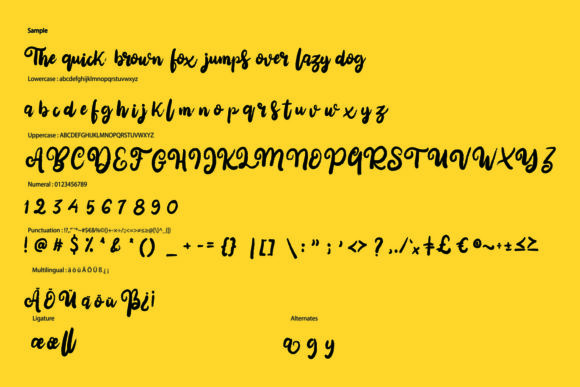 Sample
The quick brown fox jumps over lazy dog
Lowercase : abcdefghijklmnopqrstuvwxyz
a b c d e f g h i j k l m n o p q r s t u v w x y z
Uppercase : ABCDEFGHIJKLMNOPQRSTUVWXYZ
A B C D E F G H I J K L M N O P Q R S T U V W X Y Z
Numeral : 0123456789
1 2 3 4 5 6 7 8 9 0
Punctuation :
! @ # $ % ^ & * ( ) _ + - = { } | [ ] \ : " ; ' < > ? , . / ` × ‡ £ € ® ~ + ± ≤ ≥
Multilingual : ä ö ü Ä Ö Ü ß ¿ ¡
Ä Ö Ü ä ö ü ß ¿ ¡
Ligature
æ œ ll
Alternates
a g y